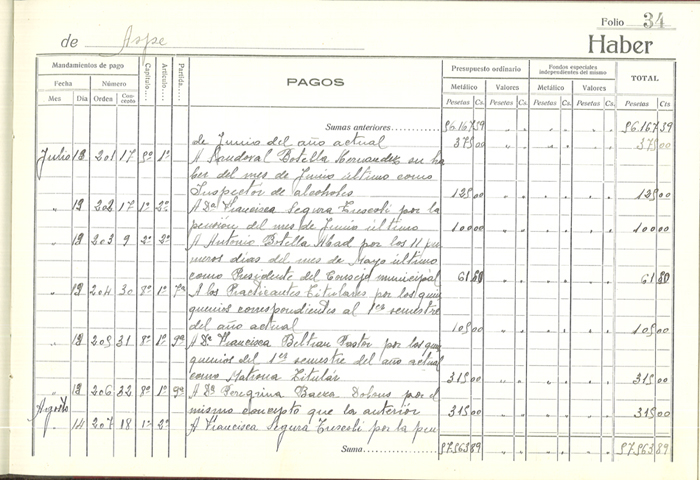 Folio 34
de Aspe Haber
Mandamientos de pago Capítulo Artículo Partida PAGOS Presupuesto ordinario Fondos especiales independientes del mismo TOTAL
Fecha Número Metálico Valores Metálico Valores
Mes Día Orden Concepto Pesetas Cs. Pesetas Cs. Pesetas Cs. Pesetas Cs. Pesetas Cts
Sumas anteriores 56.167 39 56.167 39
de Junio del año actual 375 00 375 00
Julio 12 201 17 A Sandoval Botella Hernandez su ha
ber del mes de Junio último como
Inspector de alcoholes 125 00 125 00
" 12 202 17 1º 2º A Dª Francisca Segura Cuescoli por la
pensión del mes de Junio último 100 00 100 00
" 12 203 9 2º 2º A Antonio Botella Abad por los 11 pri
meros dias del mes de Mayo último
como Presidente del Consejo municipal 61 80 61 80
" 12 204 30 8º 1º 7ª A los Practicantes Titulares por los quin
quenios correspondientes al 1er semestre
del año actual 105 00 105 00
" 12 205 31 8º 1º 9ª A Dª Francisca Beltran Pastor por los quin
quenios del 1er semestre del año actual
como Matrona Titular 315 00 315 00
" 12 206 32 8º 1º 9ª A Dª Peregrina Baeza por el
mismo concepto que la anterior 315 00 315 00
Agosto 14 207 18 1º 2º A Francisca Segura Cuescoli por la pen
Suma 57563 89 57563 89